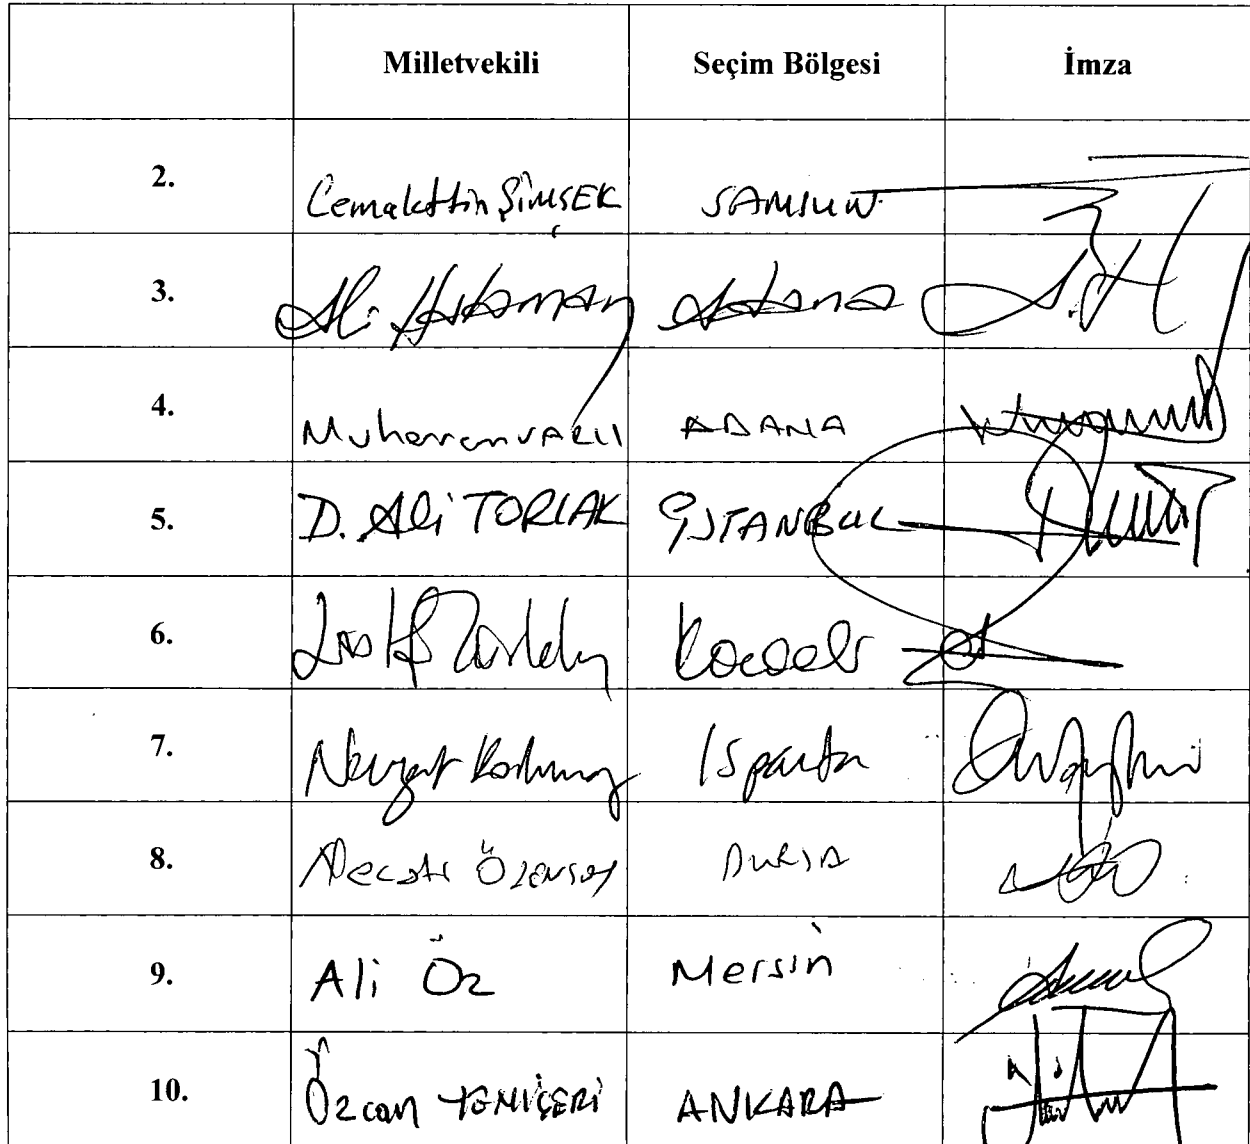 Milletvekili Seçim Bölgesi İmza
2. Cemalettin ŞİMŞEK SAMSUN
3. Ali Halaman Adana
4. Muharrem VARLI ADANA
5. D. Ali TORLAK İSTANBUL
6. Lütfü Türkkan Kocaeli
7. Nevzat Korkmaz Isparta
8. Necati Özensoy BURSA
9. Ali Öz Mersin
10. Özcan YENİÇERİ ANKARA